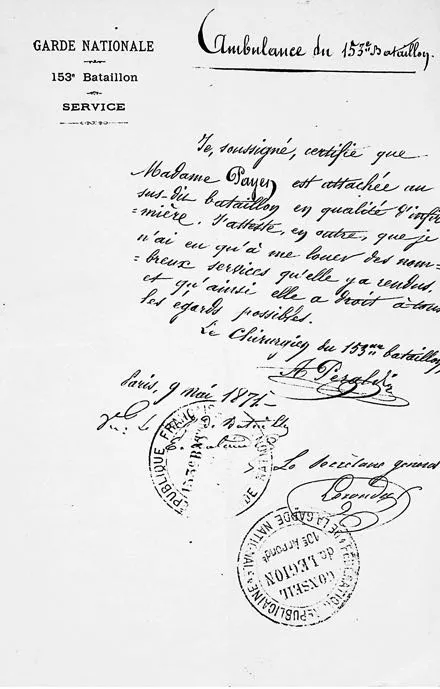 GARDE NATIONALE
153e Bataillon
SERVICE
Ambulance du 153e Bataillon.
Je, soussigné, certifie que
Madame Payen est attachée au
sus-dit bataillon en qualité d'infir
=mière. J'atteste, en outre, que je
n'ai eu qu'à me louer des nom=
=breux services qu'elle y a rendus,
et qu'ainsi elle a droit à tous
les égards possibles.
Le Chirurgien du 153me bataillon
Paris, 9 mai 1871
RÉPUBLIQUE FRANÇAISE
153e BAT
Le Secrétaire général
FÉDÉRATION RÉPUBLICAINE DE LA GARDE NATIONALE
10e Arrondt
CONSEIL
de LÉGION